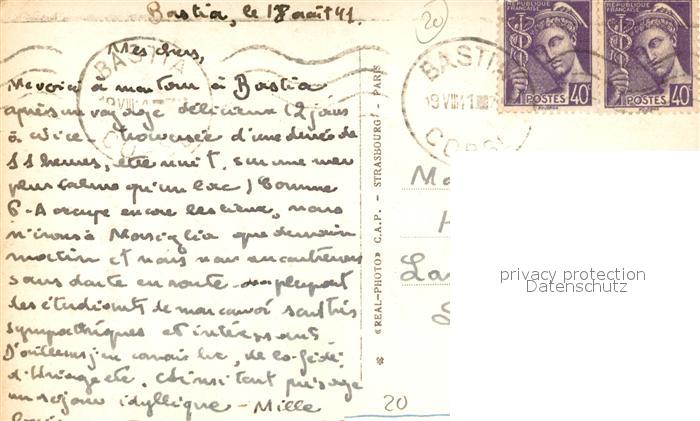 Bastia, le 18 août 41.
Mes chers,
Me voici à mon tour à Bastia
après un voyage délicieux (2 jours
à Nice - traversée d'une durée de
11 heures, et de nuit, sur une mer
plus calme qu'un lac) Comme
occupe encore les lieux, nous
n'irons à Marsiglia que demain
matin et nous nous en
sans doute en route - la plupart
des étudiants de mon sont très
sympathiques et intéressants
D'ailleurs j'en connais
d'Uriage etc. Ainsi tout présage
un séjour idyllique - Mille
20
BASTIA
18 VIII 41
CORSE
BASTIA
18 VIII 41
CORSE
RÉPUBLIQUE FRANÇAISE
POSTES 40c
RÉPUBLIQUE FRANÇAISE
POSTES 40c
«REAL-PHOTO» C.A.P. - STRASBOURG - PARIS
privacy protection
Datenschutz
20